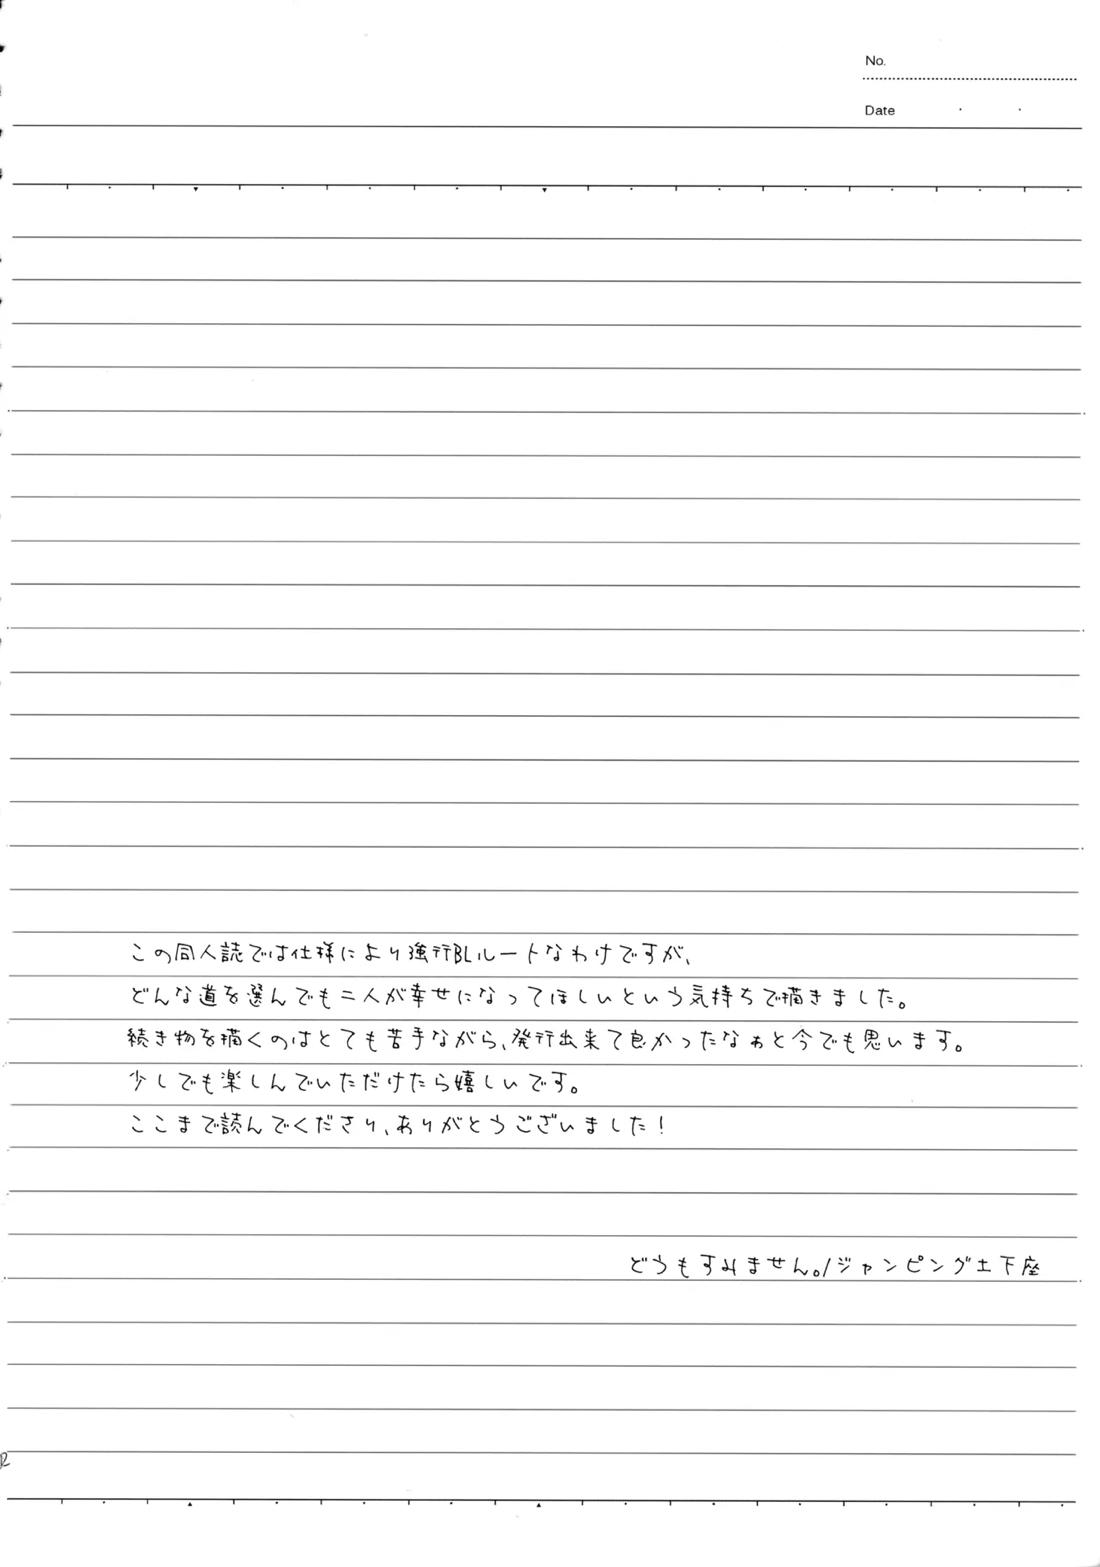 No.
Date
この同人誌では仕様により強行BLルートなわけですが、
どんな道を選んでも二人が幸せになってほしいという気持ちで描きました。
続き物を描くのはとても苦手ながら、発行出来て良かったなぁと今でも思います。
少しでも楽しんでいただけたら嬉しいです。
ここまで読んでくださり、ありがとうございました！
どうもすみません。/ジャンピング土下座